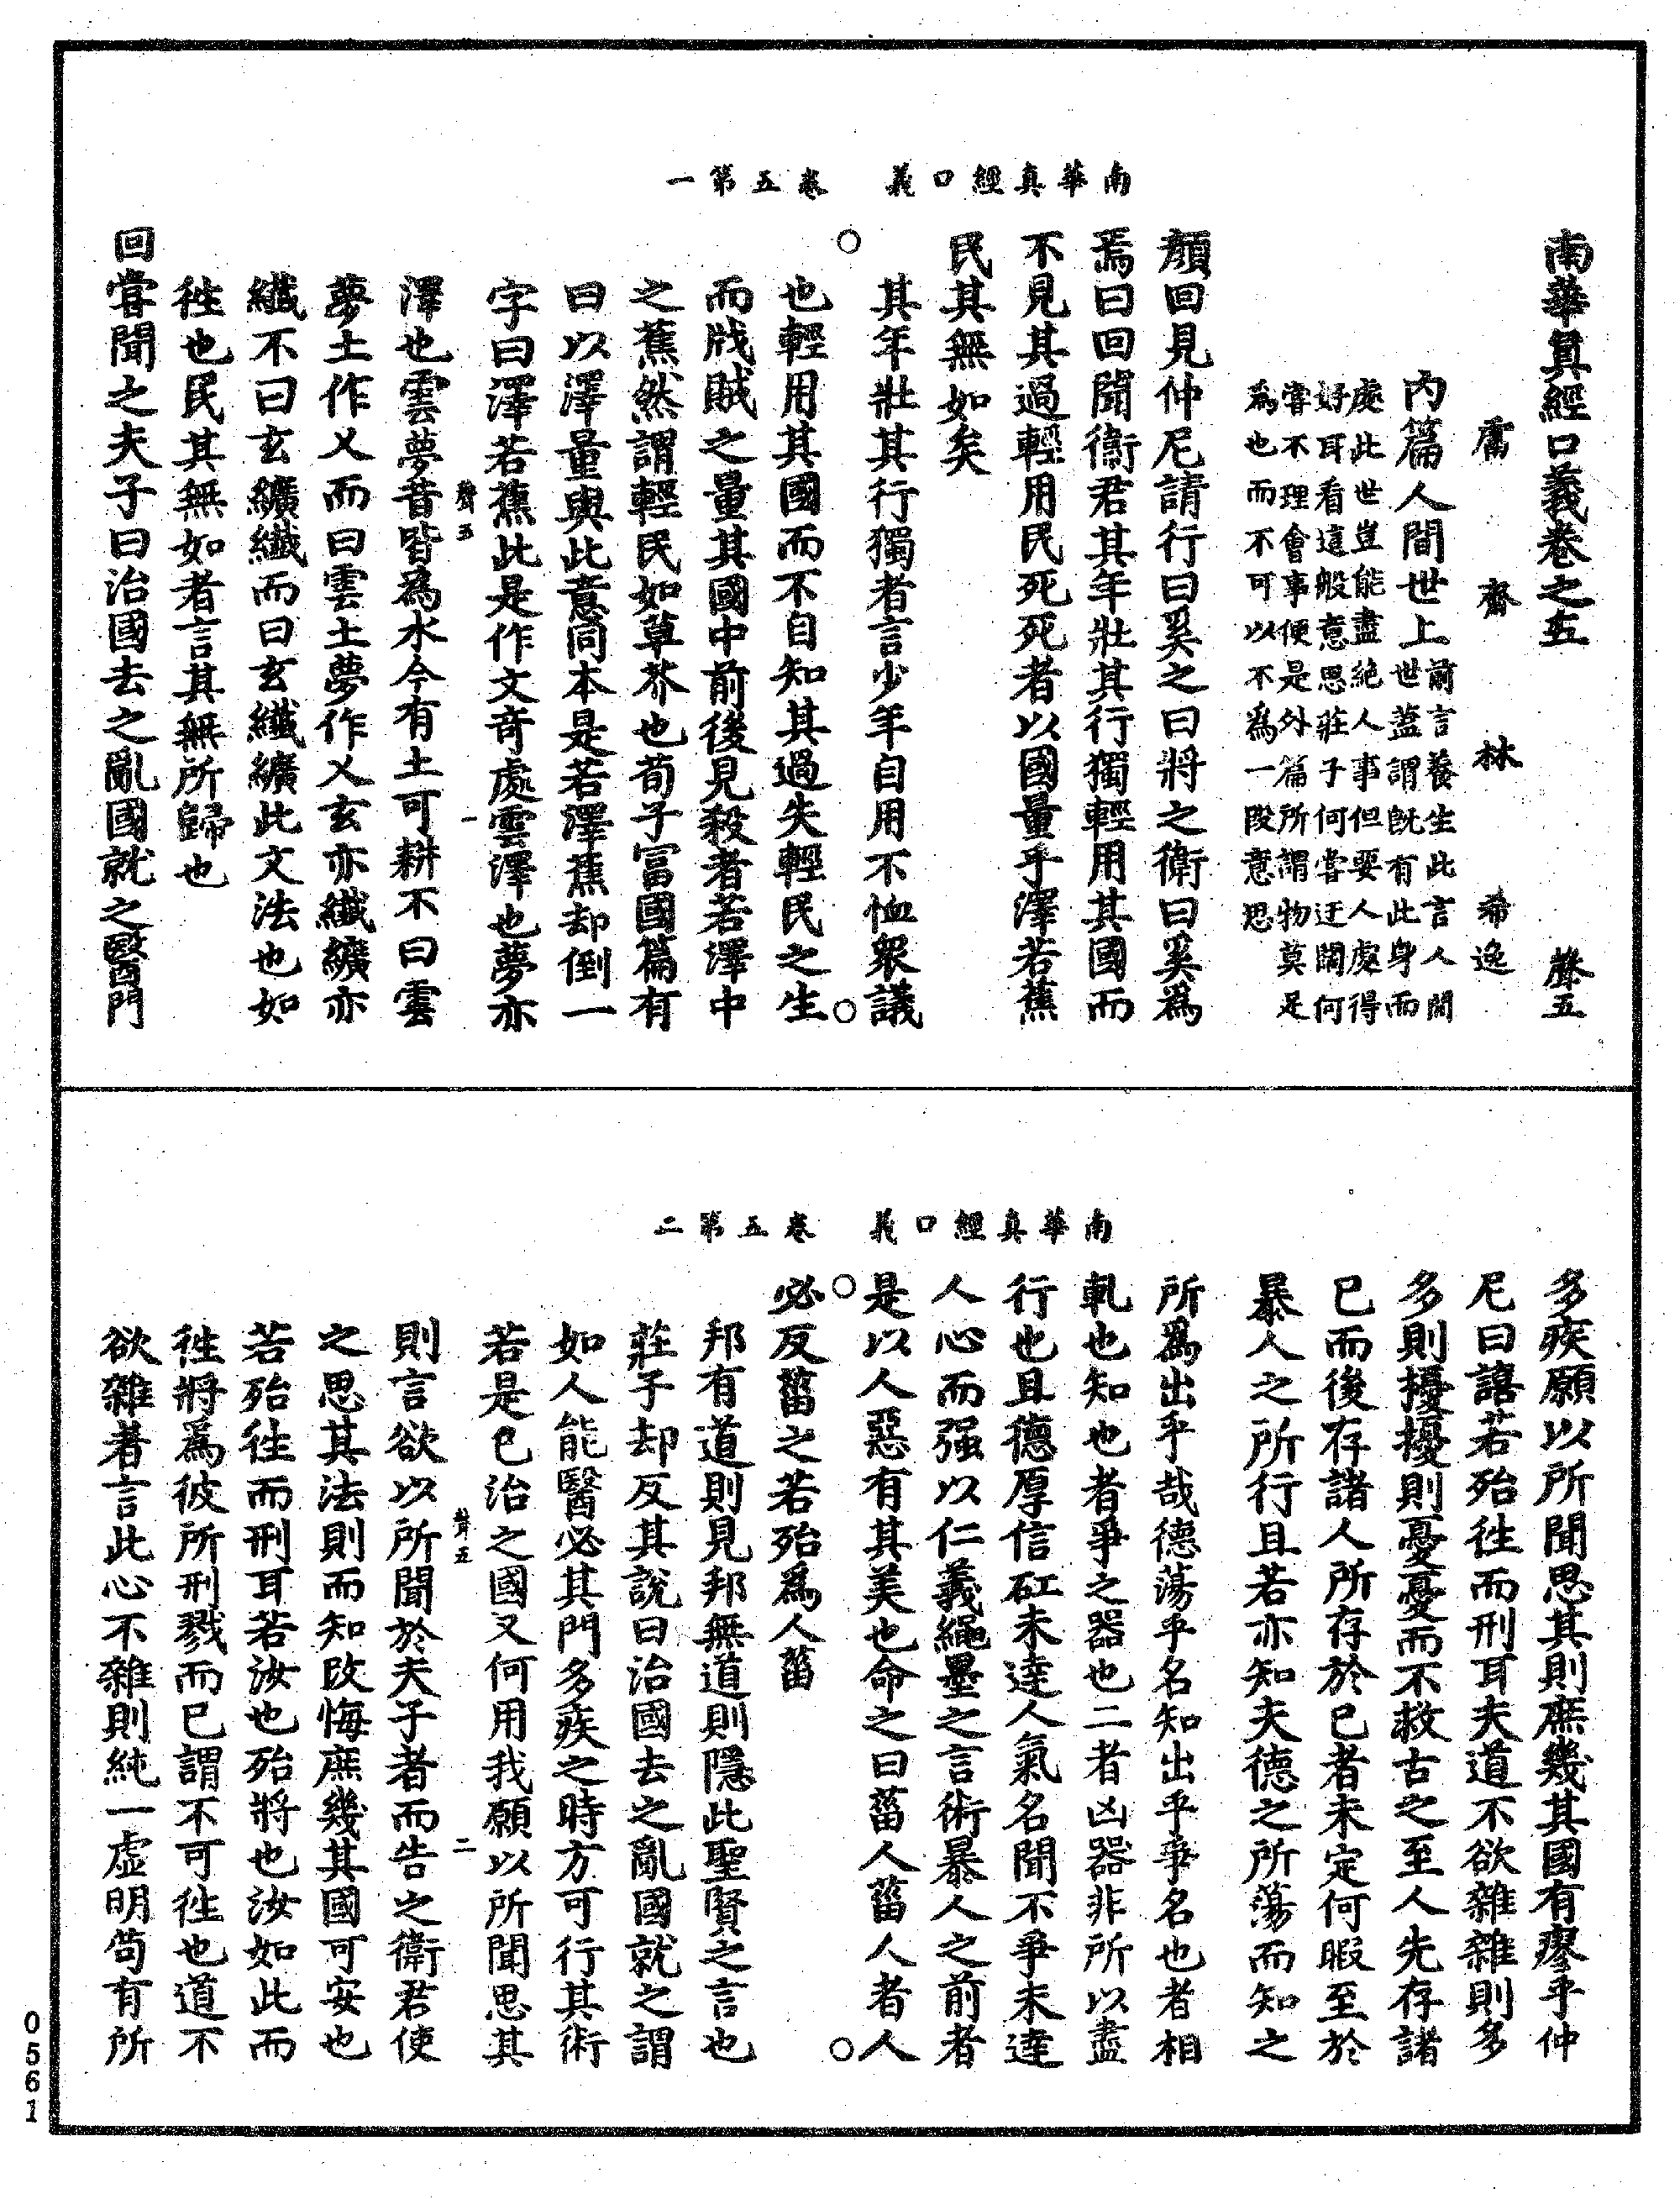 南華真經口義　卷五第一
南華真經口義卷之五　聲五
鬳　齋　林　希逸
內篇人間世上
前言養生此言人間
世蓋謂既有此身而
處此世豈能盡絕人事但要人處得
好耳看這般意思莊子何嘗迂闊何
嘗不理會事便是外篇所謂物莫足
爲也而不可以不爲一段意思
顏回見仲尼請行曰奚之曰將之衛曰奚爲
焉曰回聞衛君其年壯其行獨輕用其國而
不見其過輕用民死死者以國量乎澤若蕉
民其無如矣
其年壯其行獨者言少年自用不恤衆議
也輕用其國而不自知其過失輕民之生
而戕賊之量其國中前後見殺者若澤中
之蕉然謂輕民如草芥也荀子富國篇有
曰以澤量與此意同本是若澤蕉却倒一
字曰澤若蕉此是作文奇處雲澤也夢亦
聲五　一
澤也雲夢昔皆爲水今有土可耕不曰雲
夢土作乂而曰雲土夢作乂玄亦纖纊亦
纖不曰玄纊纖而曰玄纖纊此文法也如
徃也民其無如者言其無所歸也
回嘗聞之夫子曰治國去之亂國就之醫門
南華真經口義　卷五第二
多疾願以所聞思其則庶幾其國有瘳乎仲
尼曰譆若殆徃而刑耳夫道不欲雜雜則多
多則擾擾則憂憂而不救古之至人先存諸
已而後存諸人所存於已者未定何暇至於
暴人之所行且若亦知夫德之所蕩而知之
所爲出乎哉德蕩乎名知出乎爭名也者相
軋也知也者爭之器也二者凶器非所以盡
行也且德厚信矼未達人氣名聞不爭未達
人心而强以仁義繩墨之言術暴人之前者
是以人惡有其美也命之曰菑人菑人者人
必反菑之若殆爲人菑
邦有道則見邦無道則隱此聖賢之言也
莊子却反其說曰治國去之亂國就之謂
如人能醫必其門多疾之時方可行其術
若是已治之國又何用我願以所聞思其
聲五　二
則言欲以所聞於夫子者而告之衛君使
之思其法則而知改悔庶幾其國可安也
若殆徃而刑耳若汝也殆將也汝如此而
徃將爲彼所刑戮而已謂不可徃也道不
欲雜者言此心不雜則純一虛明苟有所
0561